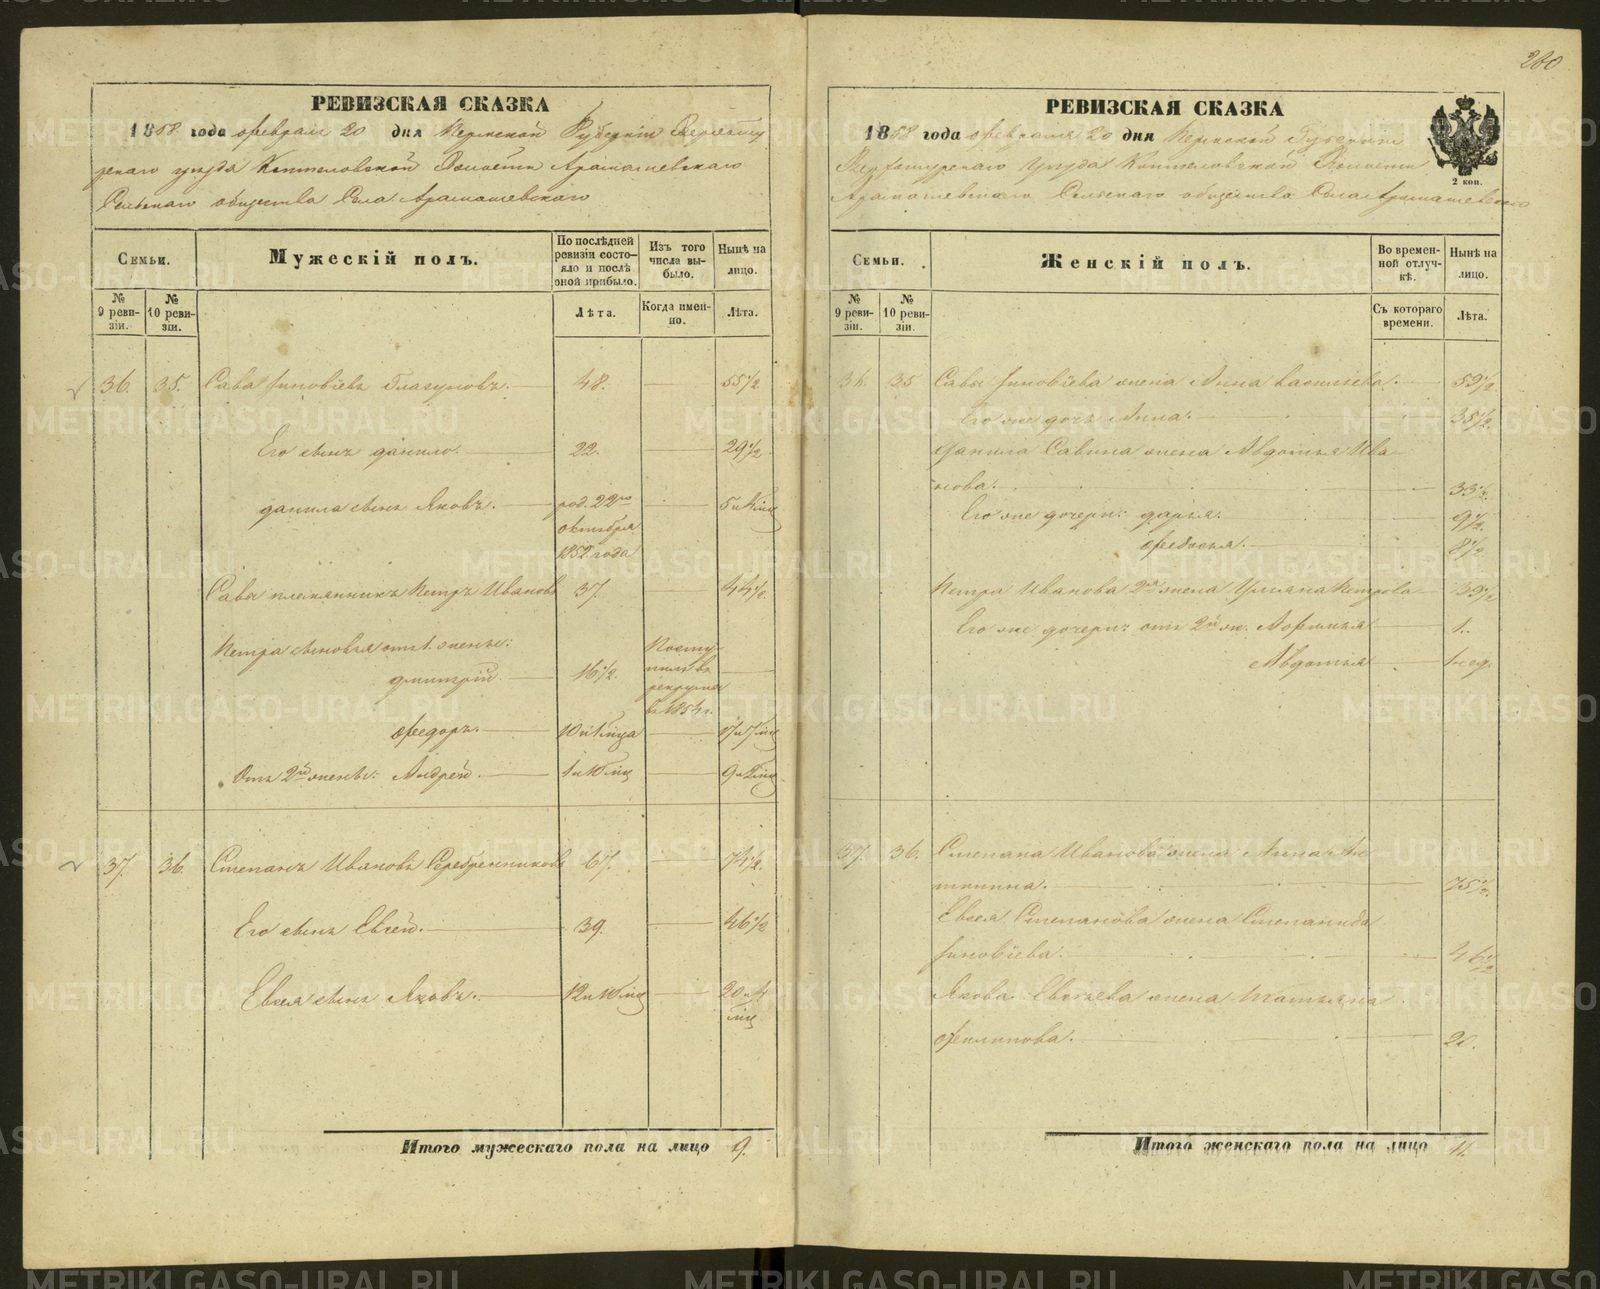 260
РЕВИЗСКАЯ СКАЗКА
1858 года февраля 20 дня Пермской Губерніи Верхоту
рскаго уѣзда Коптеловской Волости Арамашевскаго
Сельскаго общества Села Арамашевскаго
Семьи.
Мужескій полъ.
По послѣдней ревизіи состояло и послѣ оной прибыло.
Изъ того числа выбыло.
Нынѣ на лицо.
№ 9 ревизіи.
№ 10 ревизіи.
Лѣта.
Когда именно.
Лѣта.
36. 35. Сава Зиновіевъ Глазуновъ. 48. 55 1/2
Его сынъ Данило. 22. 29 1/2
Данила сынъ Яковъ. род. 22го октября 1852 года 5 и мѣц
Савы племянникъ Петръ Ивановъ 37. 44 1/2
Петра сыновья отъ 1. жены:
Дмитрій. 16 1/2. Поступилъ въ рекруты въ 1854 г.
Федоръ. 10 и мѣца 17 и 7 мѣц
Отъ 2й жены: Андрей. 1 и мѣц 9 и мѣц
37. 36. Степанъ Ивановъ Серебренниковъ 67. 74 1/2
Его сынъ Евсей. 39. 46 1/2
Евсея сынъ Яковъ. 12 и мѣц 20 и мѣц
Итого мужескаго пола на лицо 9.
РЕВИЗСКАЯ СКАЗКА
1858 года февраля 20 дня Пермской Губерніи
Верхотурскаго уѣзда Коптеловской Волости
Арамашевскаго Сельскаго общества Села Арамашевскаго
2 коп.
Семьи.
Женскій полъ.
Во временной отлучкѣ.
Нынѣ на лицо.
№ 9 ревизіи.
№ 10 ревизіи.
Съ котораго времени.
Лѣта.
36. 35 Савы Зиновіева жена Анна Васильева. 59 1/2
Его же дочь Анна. 35 1/2
Данила Савина жена Авдотья Ива
нова. 33 1/2
Его же дочери: Дарья. 9 1/2
Федосья. 8 1/2
Петра Иванова 2я жена Ульяна Петрова 39 1/2
Его же дочери: отъ 2й ж. Афимья 1.
Авдотья 1 нед.
37. 36. Степана Иванова жена Анна Ан
типина. 75 1/2
Евсея Степанова жена Степанида
Зиновіева. 46 1/2
Якова Евсѣева жена Татьяна
Филипова. 20.
Итого женскаго пола на лицо 11.
METRIKI.GASO-URAL.RU